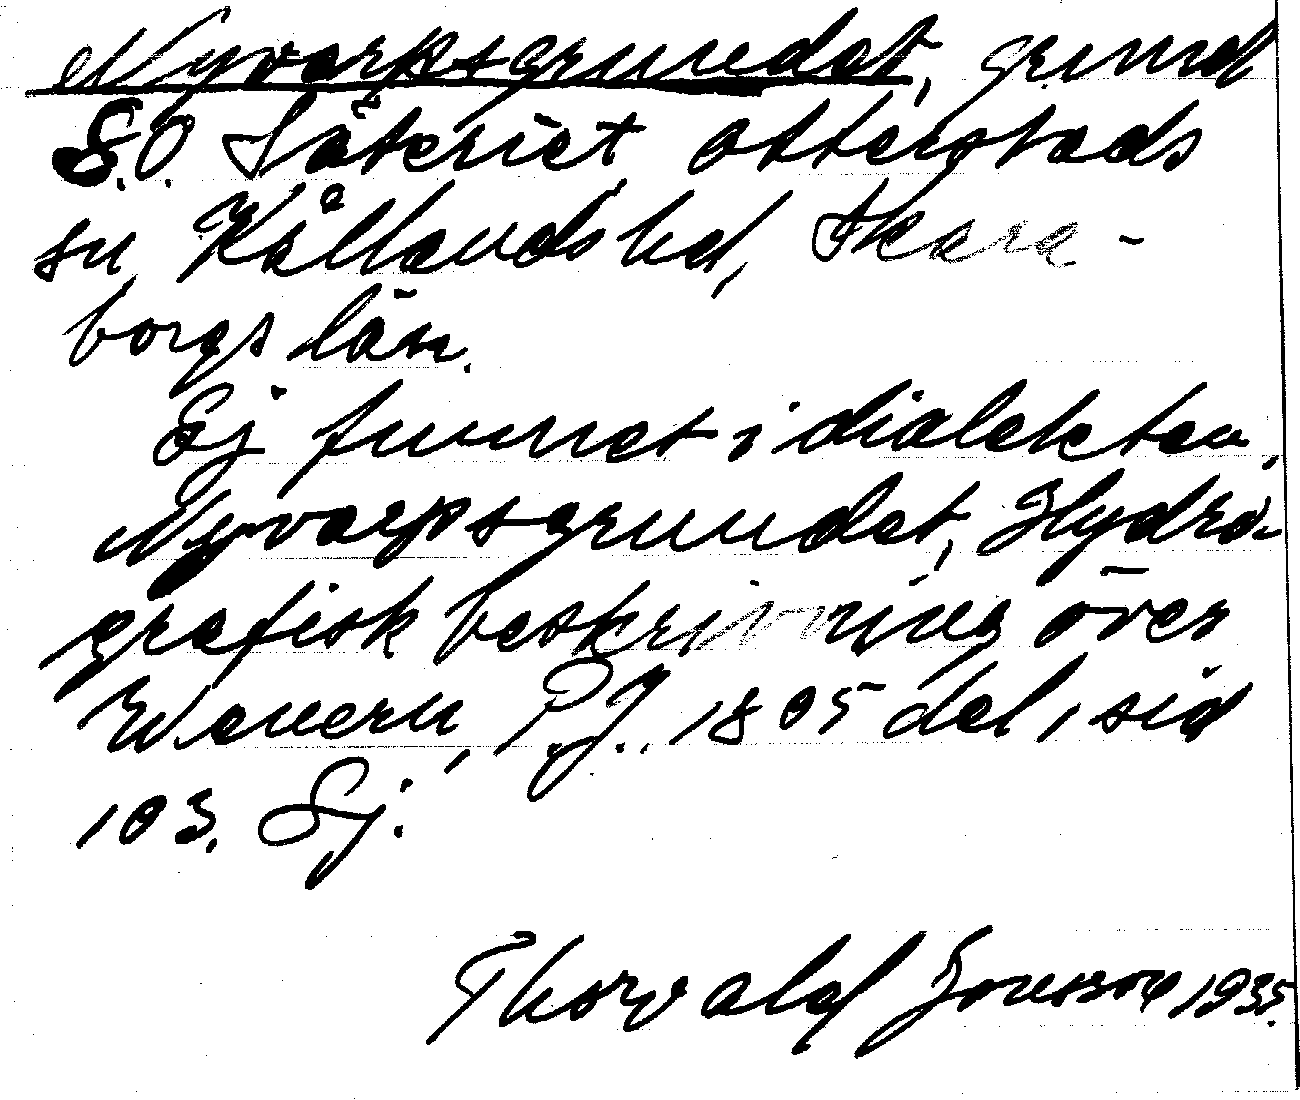 Nyvarpsgrundet, grund
S.O. Säteriet, Otterstads
sn, Kållands hd, Skara-
borgs län.
Ej funnet i dialekten.
Nyvarpsgrundet, Hydro-
grafisk beskrivning över
Wenern, P.G. 1805 del 1 sid
103. Sj.
Thorvald Jonsson 1935.